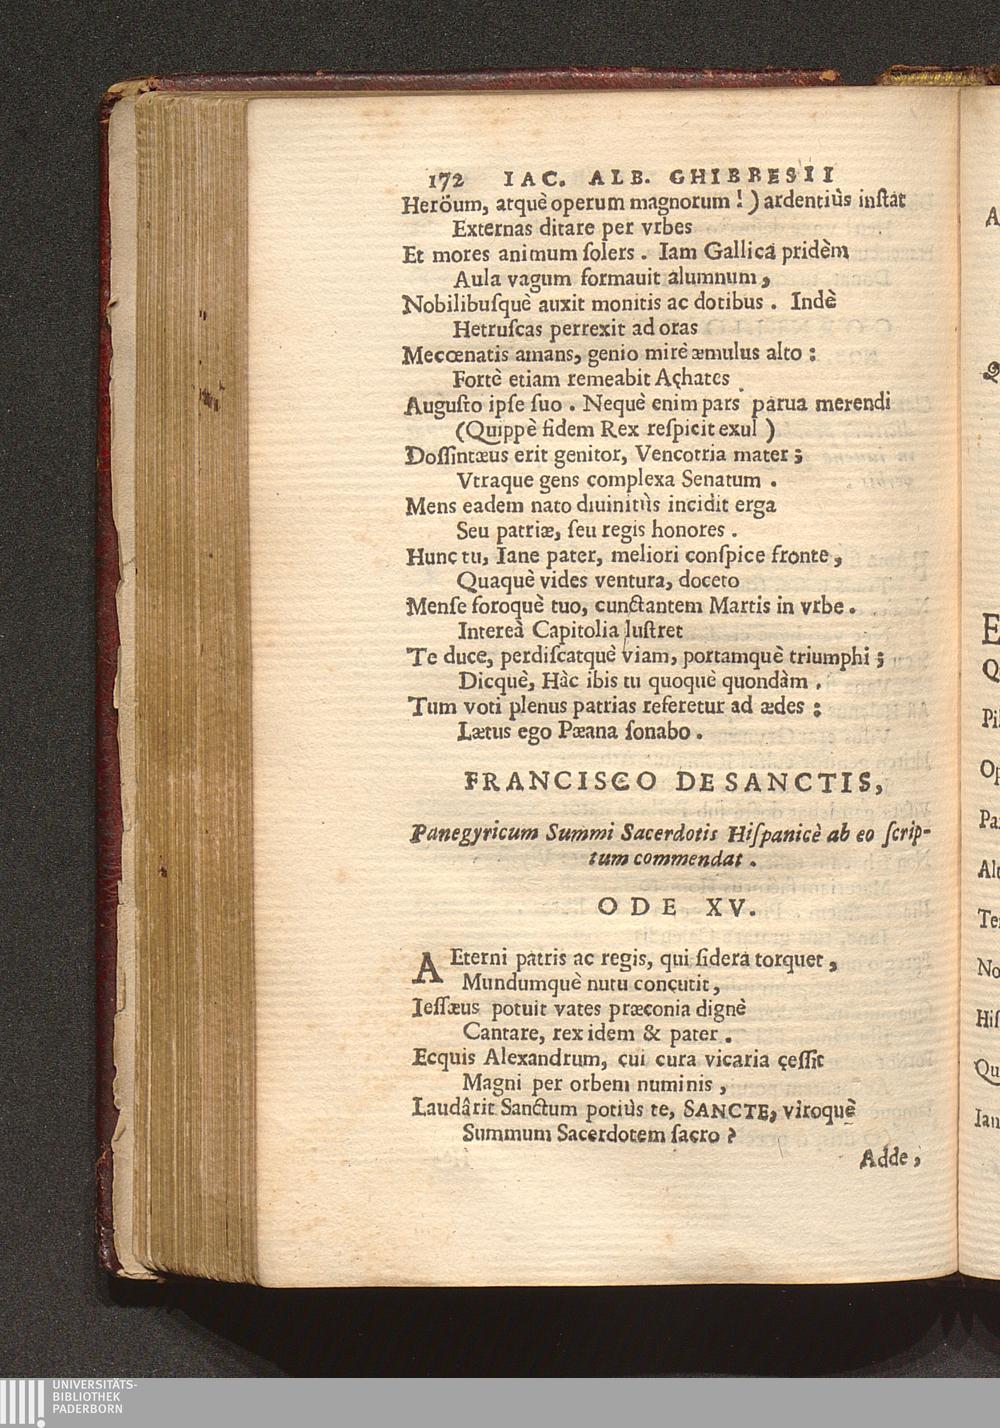 172 IAC. ALB. GHIBBESII
Heröum, atquè operum magnorum! ) ardentiùs inſtat
Externas ditare per vrbes
Et mores animum ſolers. Iam Gallica pridèm
Aula vagum formauit alumnum,
Nobilibuſquè auxit monitis ac dotibus. Indè
Hetruſcas perrexit ad oras
Mecœnatis amans, genio mirè æmulus alto:
Fortè etiam remeabit Achates
Auguſto ipſe ſuo. Nequè enim pars parua merendi
(Quippè fidem Rex reſpicit exul)
Doſſintæus erit genitor, Vencotria mater;
Vtraque gens complexa Senatum.
Mens eadem nato diuinitùs incidit erga
Seu patriæ, ſeu regis honores.
Hunc tu, Iane pater, meliori conſpice fronte,
Quaquè vides ventura, doceto
Menſe foroquè tuo, cunctantem Martis in vrbe.
Intereà Capitolia luſtret
Te duce, perdiſcatquè viam, portamquè triumphi;
Dicquè, Hàc ibis tu quoquè quondàm.
Tum voti plenus patrias referetur ad ædes:
Lætus ego Pæana ſonabo.
FRANCISCO DE SANCTIS,
Panegyricum Summi Sacerdotis Hiſpanicè ab eo ſcrip-
tum commendat.
ODE XV.
AEterni patris ac regis, qui ſidera torquet,
Mundumquè nutu concutit,
Ieſſæus potuit vates præconia dignè
Cantare, rex idem & pater.
Ecquis Alexandrum, cui cura vicaria ceſſit
Magni per orbem numinis,
Laudârit Sanctum potiùs te, SANCTE, viroquè
Summum Sacerdotem ſacro?
Adde,
A
E
Q
Pi
Op
Pa
Al
Te
No
Hiſ
Qu
Ian
UNIVERSITÄTS-
BIBLIOTHEK
PADERBORN